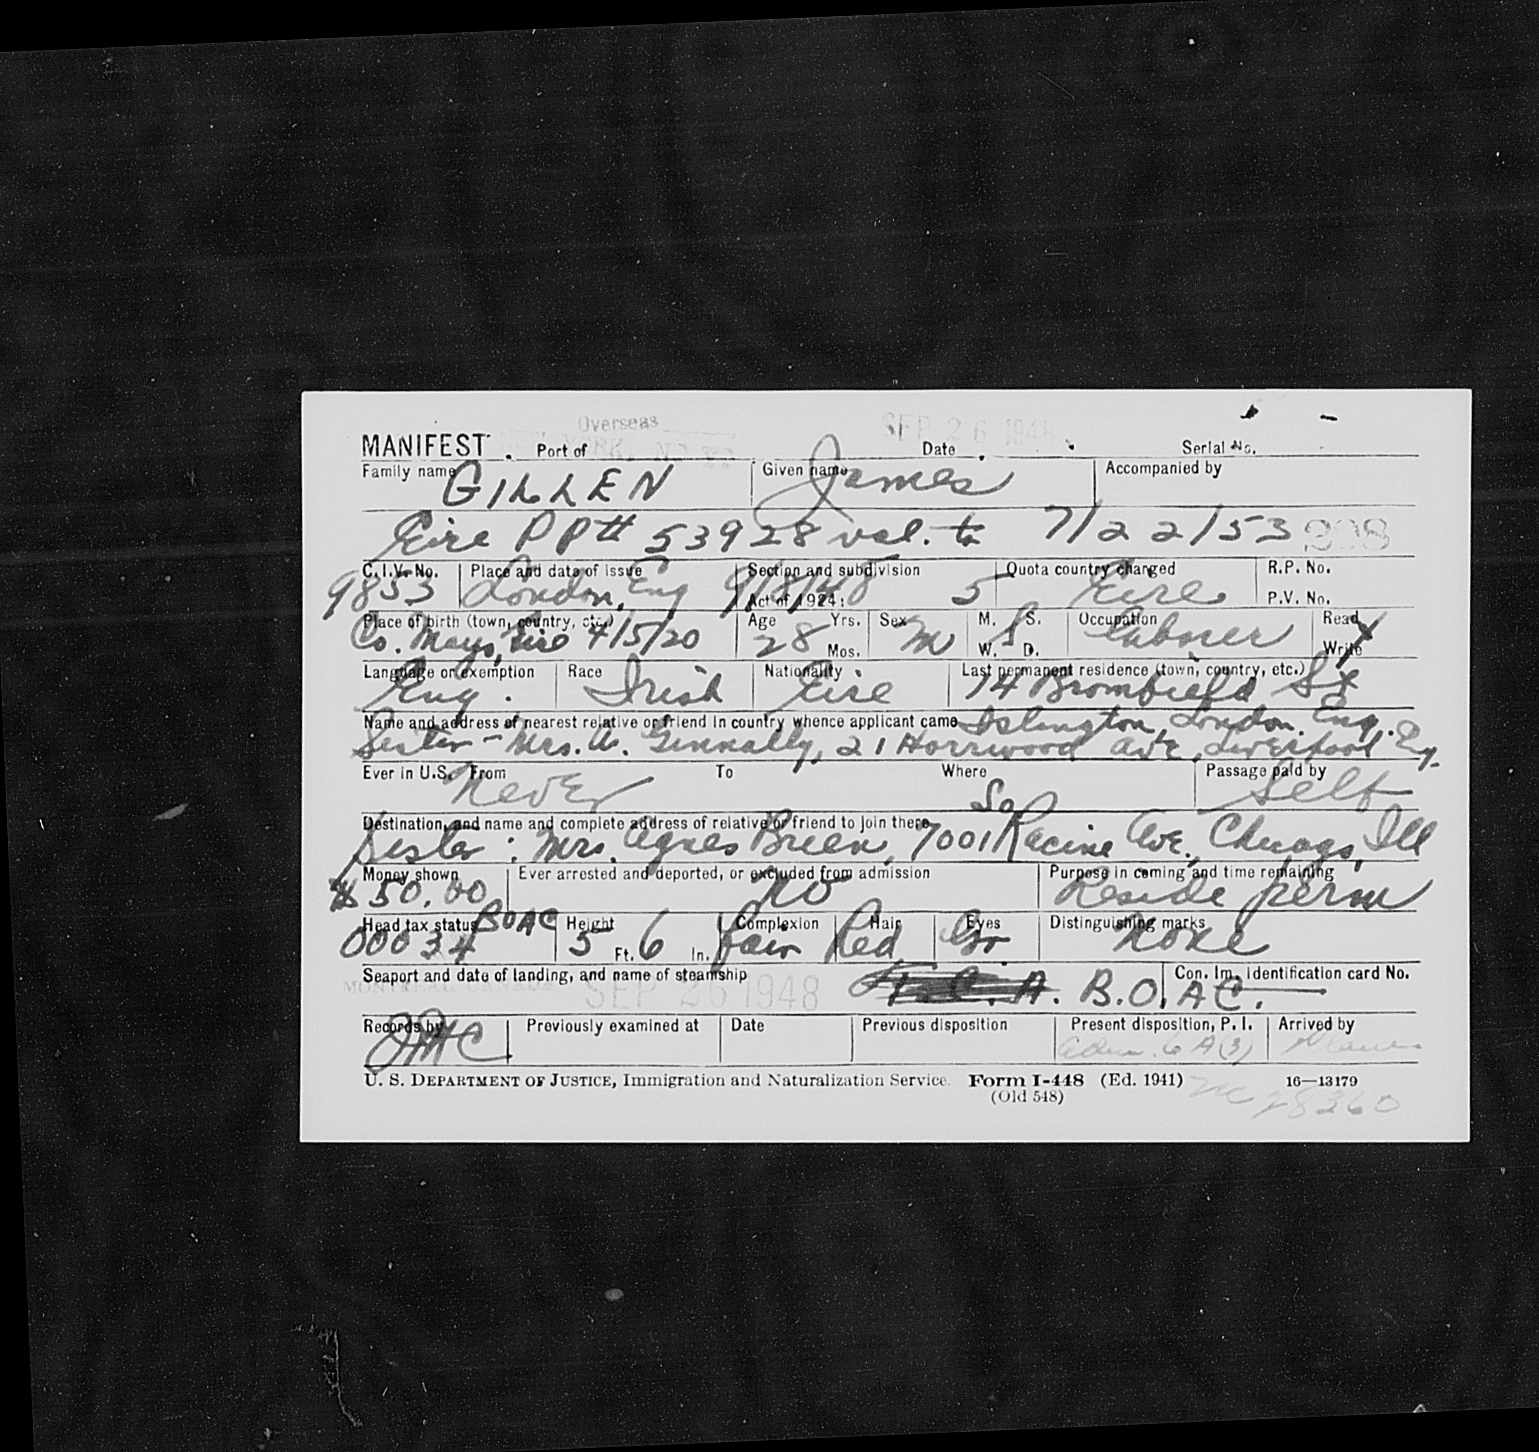 Overseas
SEP 26 1948
MANIFEST Port of Date Serial No.
Family name GILLEN Given name James Accompanied by
Eire PP# 53928 val. to 7/22/53 298
C.I.V. No. Place and date of issue Section and subdivision Quota country charged R.P. No.
9853 London, Eng 9/8/48 Act of 1924: 5 Eire P.V. No.
Place of birth (town, country, etc.) Age Yrs. Sex M. S. Occupation Read
Co. Mayo, Eire 4/5/20 28 Mos. M W. S D. Laborer Write
Language or exemption Race Nationality Last permanent residence (town, country, etc.)
Eng. Irish Eire 14 Bromfield St
Name and address of nearest relative or friend in country whence applicant came Islington, London. Eng.
Sister - Mrs. A. 21 Ave, Liverpool Eng.
Ever in U.S. From To Where Passage paid by
Never Self
Destination, and name and complete address of relative or friend to join there So
Sister: Mrs. Agnes Breen, 7001 Racine Ave., Chicago, Ill
Money shown Ever arrested and deported, or excluded from admission Purpose in coming and time remaining
$50.00 No Reside perm
Head tax status BOAC Height Complexion Hair Eyes Distinguishing marks
00034 5 Ft. 6 In. Fair Red None
Seaport and date of landing, and name of steamship Con. Im. Identification card No.
MONTREAL CANADA SEP 26 1948 T.C.A. B.O.A.C.
Records by Previously examined at Date Previous disposition Present disposition, P. I. Arrived by
Adm. 6 A (3)
U. S. DEPARTMENT OF JUSTICE, Immigration and Naturalization Service. Form I-448 (Ed. 1941) 16—13179
(Old 548) 28360